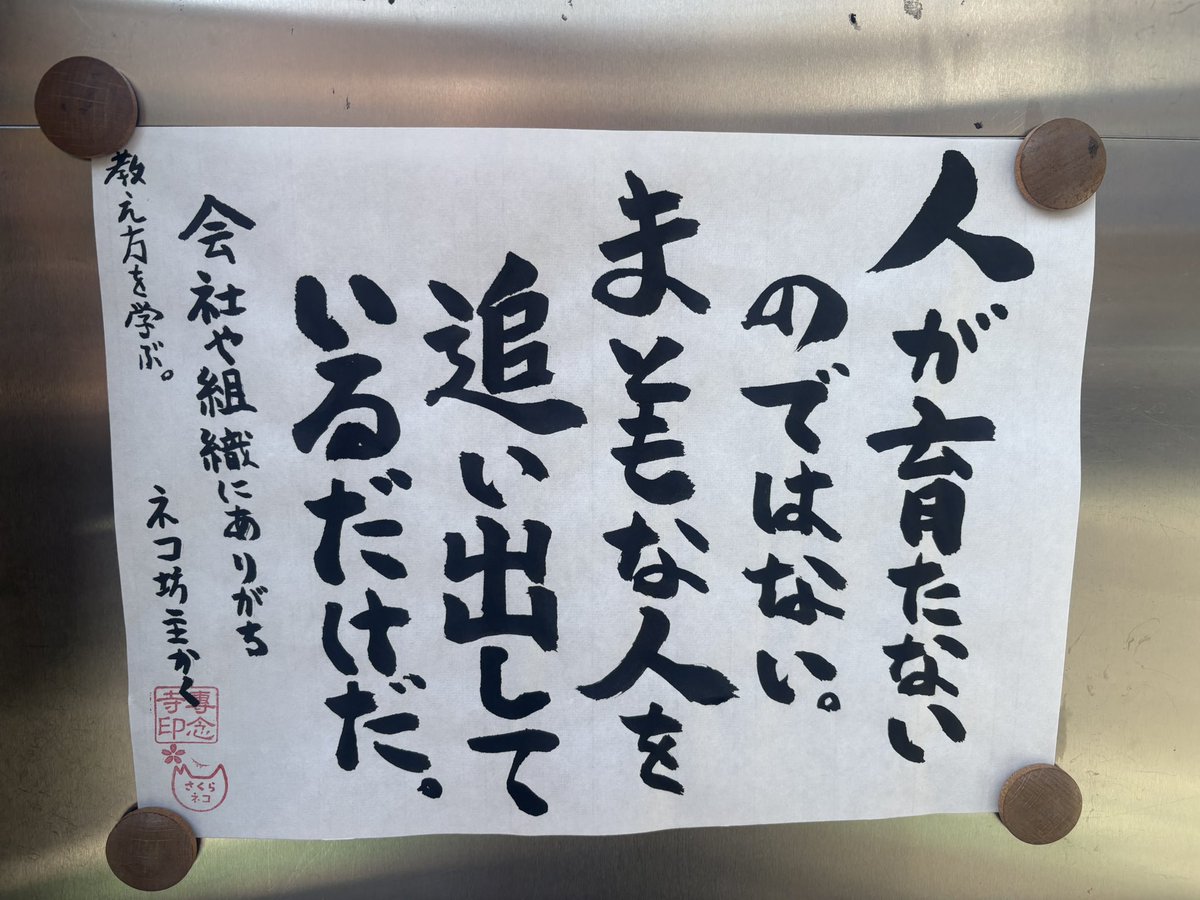 人が育たない
のではない。
まともな人を
追い出して
いるだけだ。
会社や組織にありがち
教え方を学ぶ。
ネコ坊主かく
専念
寺印
さくら
ネコ